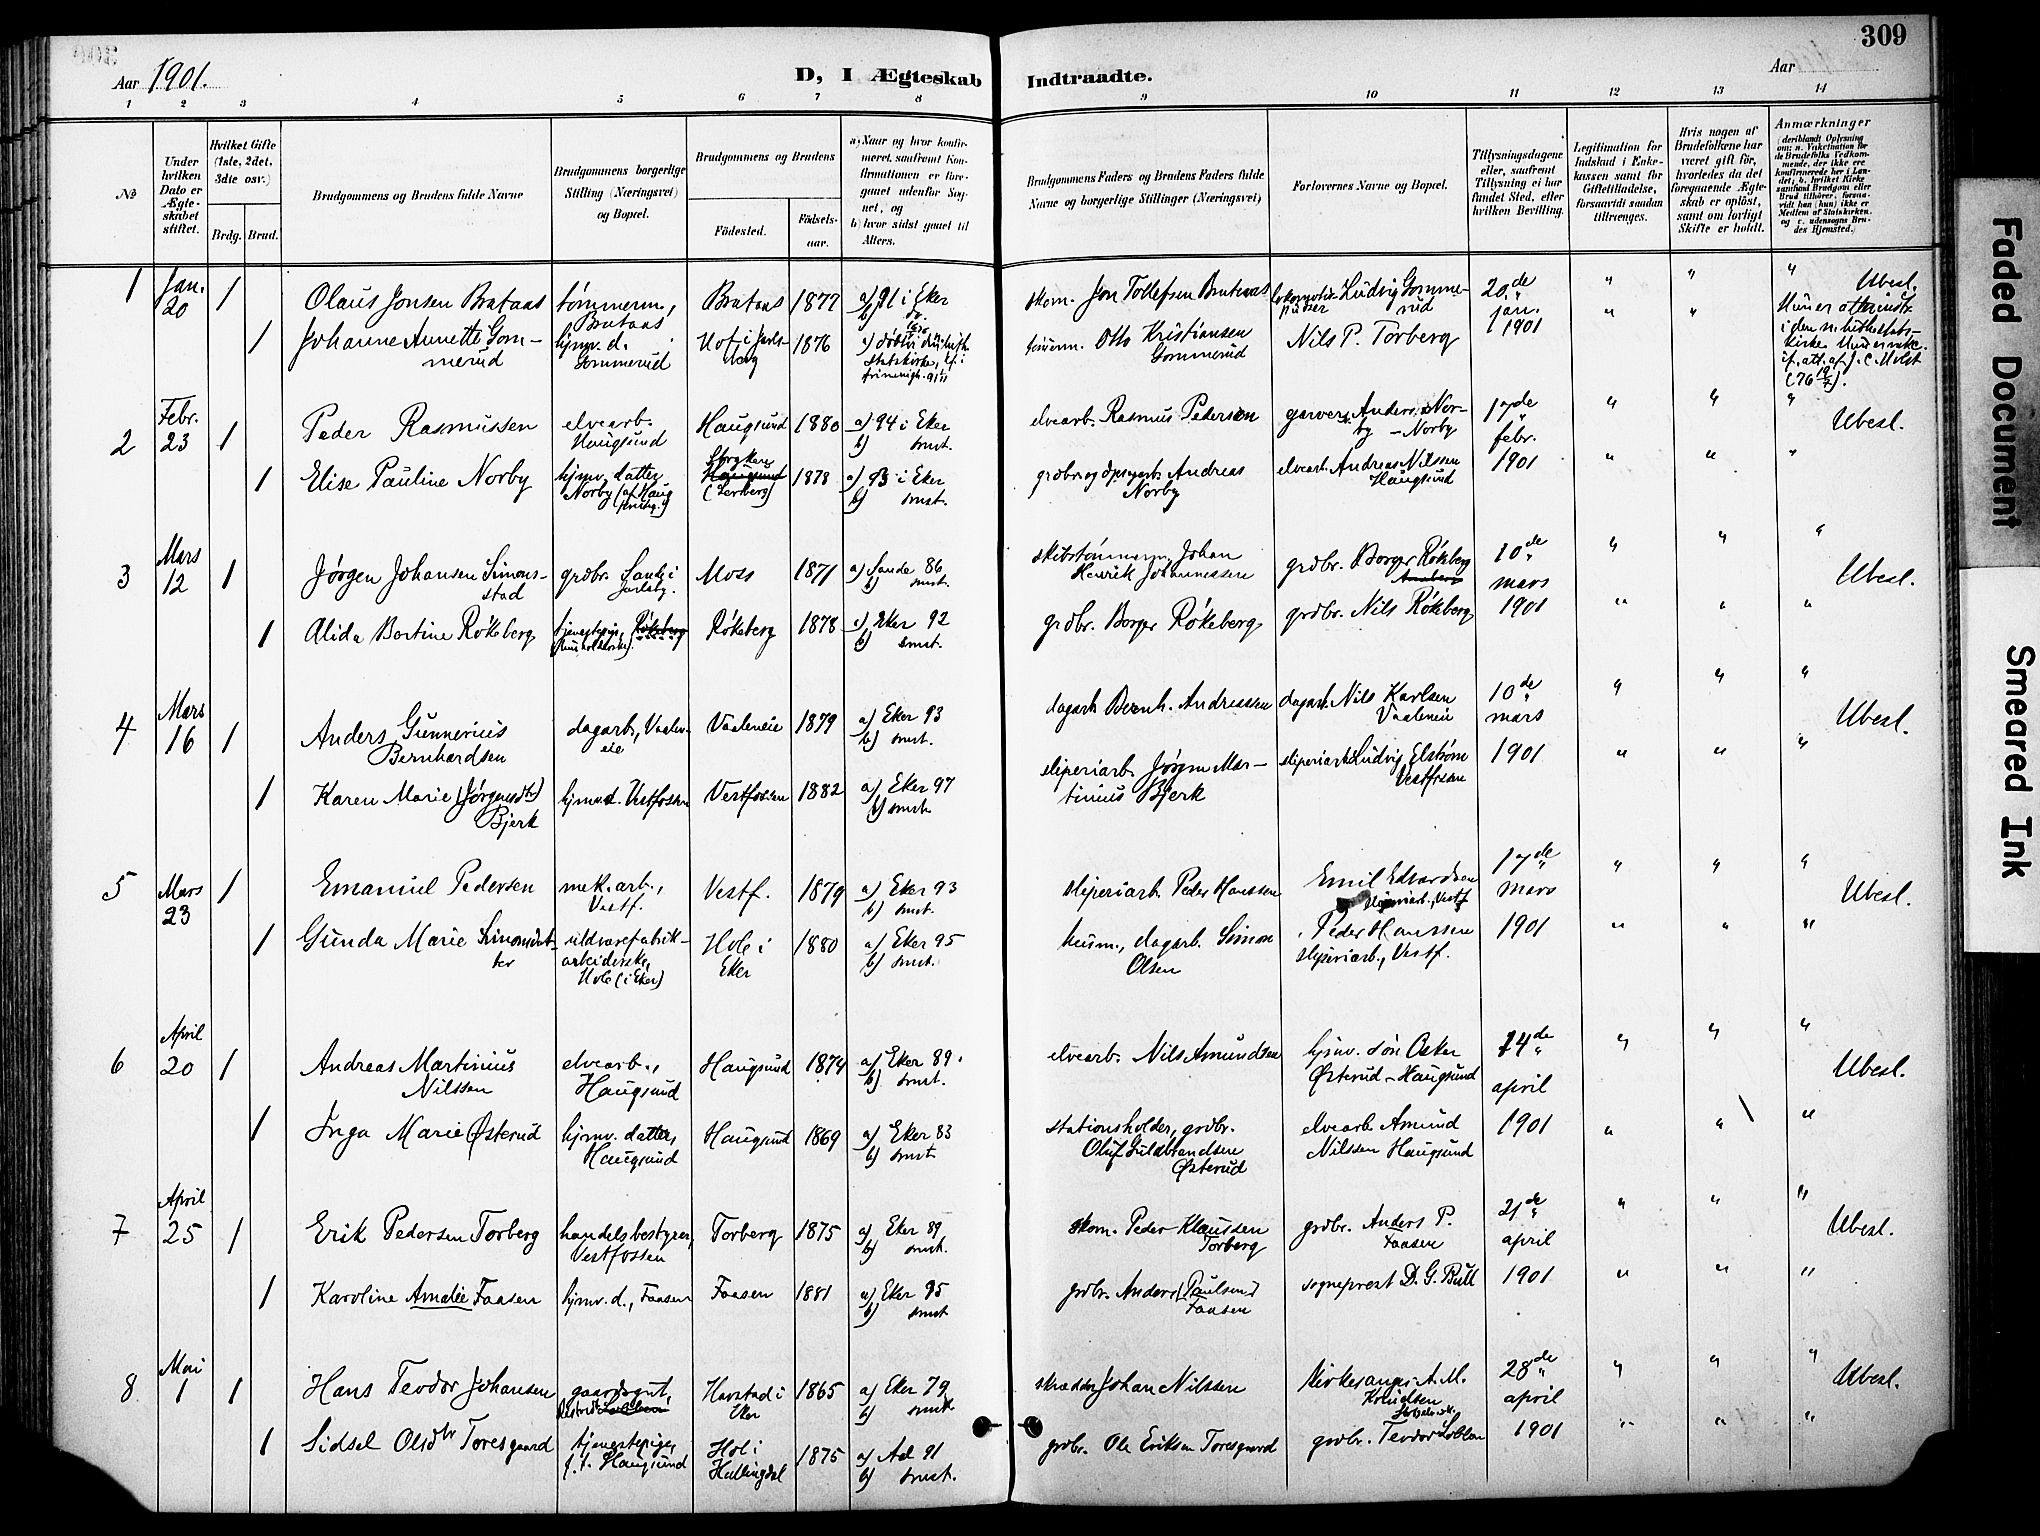 309
Aar 1901.
D, I Ægteskab
Indtraadte.
Aar
1 2 3 4 5 6 7 8
9 10 11 12 13 14
No
Under hvilken Dato er Ægteskabet stiftet.
Hvilket Gifte (1ste, 2det, 3die osv.)
Brdg. Brud.
Brudgommens og Brudens fulde Navne
Brudgommens borgerlige Stilling (Næringsvei) og Bopæl.
Brudgommens og Brudens
Fødested.
Fødselsaar.
a) Naar og hvor konfirmeret, saafremt Konfirmationen er foregaaet udenfor Sognet, og
b) hvor sidst gaaet til Alters.
Brudgommens Faders og Brudens Faders fulde Navne og borgerlige Stillinger (Næringsvei)
Forlovernes Navne og Bopæl.
Tillysningsdagene eller, saafremt Tillysning ei har fundet Sted, efter hvilken Bevilling.
Legitimation for Indskud i Enkekassen samt for Giftetilladelse, forsaavidt saadan tiltrænges.
Hvis nogen af Brudefolkene har været gift før, hvorledes da det foregaaende Ægteskab er opløst, samt om lovligt Skifte er holdt.
Anmærkninger
1 Jan. 20 1 Olaus Jonsen Brataas tømmerm., Brataas Brataas 1877 a) 91 i Eker b) do.
skom. Jon Tollefsen Brataas Ludvig Gommerud 20de jan. 1901 " " " Ubesl.
1 Johanne Annette Gommerud hjmv. d. Gommerud Hof i Jarlsberg 1876
tømm. Otto Kristiansen Gommerud Nils P. Torberg " "
2 Febr. 23 1 Peder Rasmussen elvearb. Haugsund Haugsund 1880 a) 94 i Eker b) smst.
elvearb. Rasmus Pedersen Anders Norby - Norby 17de febr. 1901 " " " Ubesl.
1 Elise Pauline Norby hjmv. datter, Norby Haugsund 1878 a) 93 i Eker b) smst.
Andreas Norby elvearb. Andreas Nilssen Haugsund " " "
3 Mars 12 1 Jørgen Johansen Simonstad grdbr. Moss 1871 a) Sande 86 b) smst.
skibstømmerm. Johan Henrik Johannessen grdbr. Borger Røkeberg 10de mars 1901 " " " Ubesl.
1 Alida Bortine Røkeberg tjenestepige, Røkeberg Røkeberg 1878 a) Eker 92 b) smst.
grdbr. Borger Røkeberg grdbr. Nils Røkeberg " " "
4 Mars 16 1 Anders Gunnerius Bernhardsen dagarb., Vaaleneie Vaaleneie 1879 a) Eker 93 b) smst.
dagarb. Bernh. Andreassen dagarb. Nils Karlsen Vaaleneie 10de mars 1901 " " " Ubesl.
1 Karen Marie (Jørgensdtr) Bjerk hjmv. d. Vestfossen Vestfossen 1882 a) Eker 97 b) smst.
sliperiarb. Jørgen Martinius Bjerk sliperiarb. Ludvig Elstrøm Vestfossen " " "
5 Mars 23 1 Emanuel Pedersen mek. arb., Vestf. Vestf. 1879 a) Eker 93 b) smst.
sliperiarb. Peder Hanssen Emil Edvardsen sliperiarb., Vestf. 17de mars 1901 " " " Ubesl.
1 Gunda Marie Simonsdatter uldvarefabrikarbeiderske, Hole (i Eker) Hole i Eker 1880 a) Eker 95 b) smst.
husm., dagarb. Simon Olsen Peder Hanssen sliperiarb., Vestf. " " "
6 April 20 1 Andreas Martinius Nilssen elvearb., Haugsund Haugsund 1874 a) Eker 89 b) smst.
elvearb. Nils Amundsen hjmv. søn Oskar Østerud - Haugsund 14de april 1901 " " " Ubesl.
1 Inga Marie Østerud hjmv. datter, Haugsund Haugsund 1869 a) Eker 83 b) smst
stationsholder, grdbr. Oluf Guldbrandsen Østerud elvearb. Amund Nilssen Haugsund " " "
7 April 25 1 Erik Pedersen Torberg handelsbestyrer, Vestfossen Torberg 1875 a) Eker 89 b) smst.
skom. Peder Klaussen Torberg grdbr. Anders P. Faasen 21de april 1901 " " " Ubesl.
1 Karoline Amalie Faasen hjmv. d., Faasen Faasen 1881 a) Eker 95 b) smst
grdbr. Anders (Paulsen) Faasen sogneprest D. G. Bull " " "
8 Mai 1 1 Hans Teodor Johansen gaardsgut, Harstad i Eker 1865 a) Eker 79 b) smst
skrædder Johan Nilssen Kirkesanger A. M. Knudsen 28de april 1901 " " " Ubesl.
1 Sidsel Olsdtr Toresgaard tjenestepige, f.t. Haugsund Hol i Hallingdal 1875 a) Aal 91 b) smst.
grdbr. Ole Eriksen Toresgaard grdbr. Teodor Loblan " " "
Faded Document
Smeared Ink